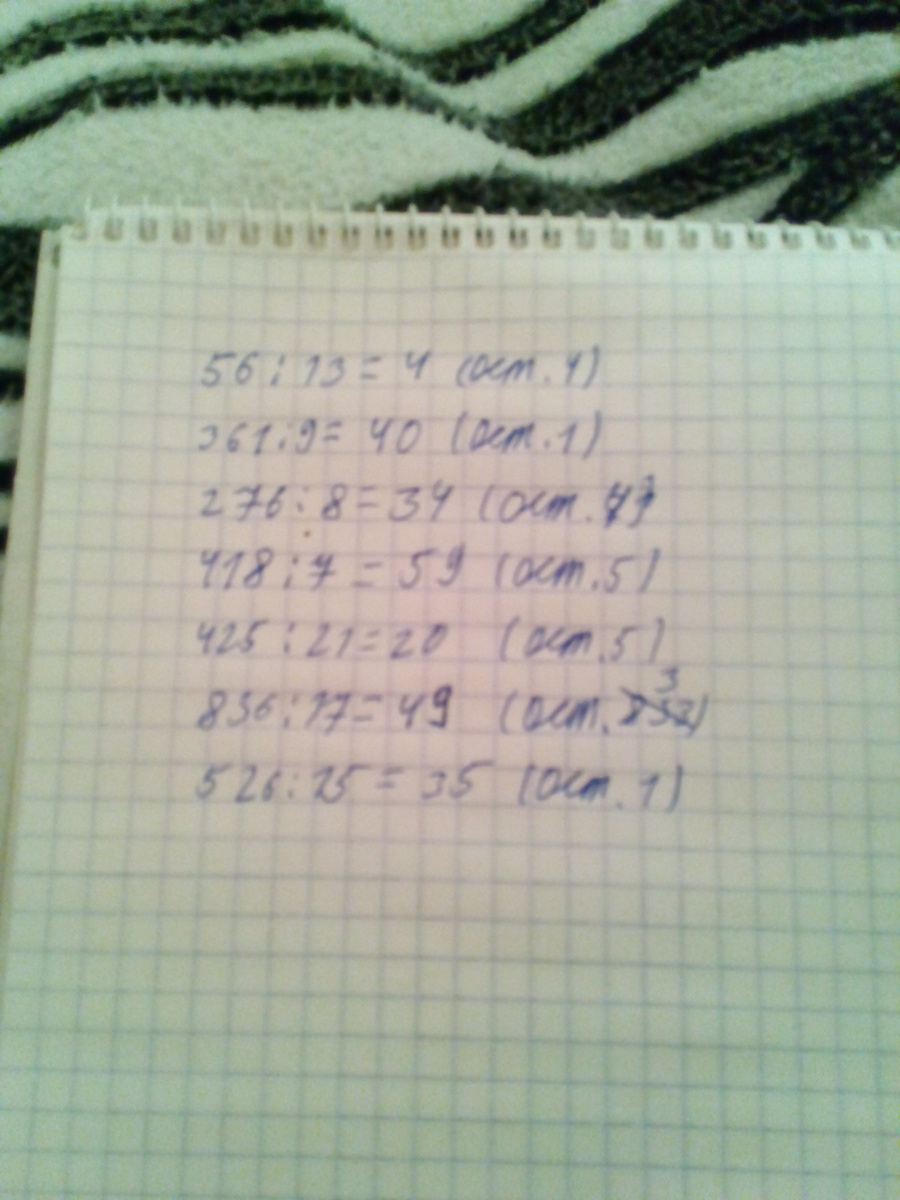 56 : 13 = 4 (ост. 4)
361 : 9 = 40 (ост. 1)
276 : 8 = 34 (ост. 4)
418 : 7 = 59 (ост. 5)
425 : 21 = 20 (ост. 5)
836 : 17 = 49 (ост. 3)
526 : 15 = 35 (ост. 1)